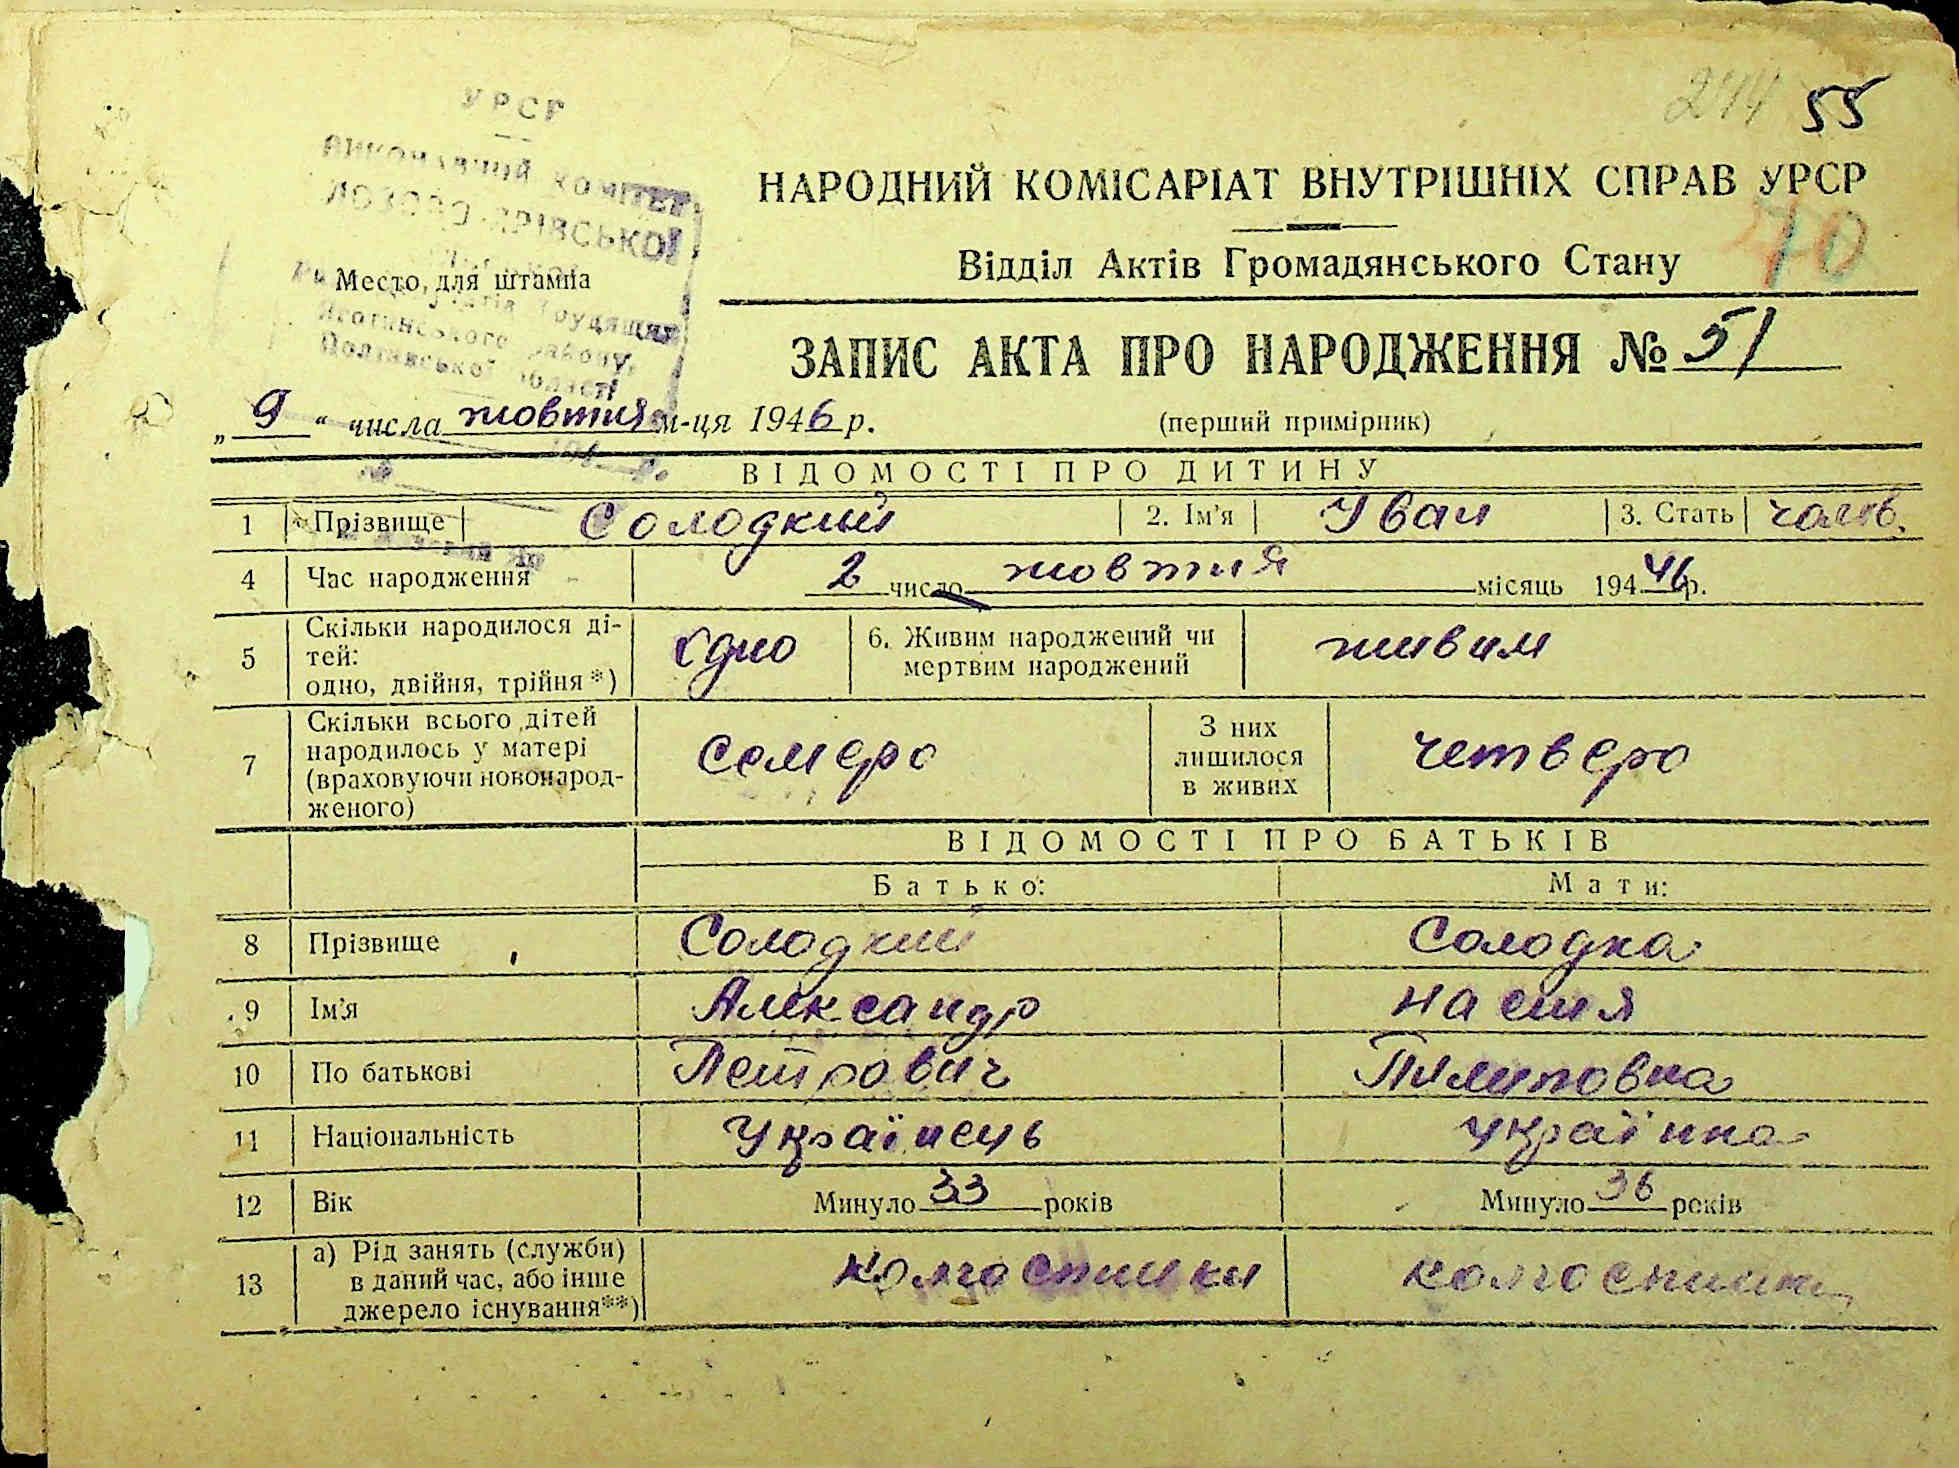 244 55
УРСР
ВИКОНАВЧИЙ КОМІТЕТ
ЛОЗОВО-ЯРІВСЬКОЇ
трудящих
Яготинського району,
Полтавської області
НАРОДНИЙ КОМІСАРІАТ ВНУТРІШНІХ СПРАВ УРСР
70
Відділ Актів Громадянського Стану
Место для штампа
ЗАПИС АКТА ПРО НАРОДЖЕННЯ № 51
„ 9 “ числа жовтня м-ця 1946 р.
(перший примірник)
ВІДОМОСТІ ПРО ДИТИНУ
1 Прізвище Солодкий 2. Ім'я Іван 3. Стать чолов.
4 Час народження 2 число жовтня місяць 194 46 р.
5 Скільки народилося ді-
тей:
одно, двійня, трійня*) одно 6. Живим народжений чи
мертвим народжений живим
7 Скільки всього дітей
народилось у матері
(враховуючи новонарод-
женого) семеро З них
лишилося
в живих четверо
ВІДОМОСТІ ПРО БАТЬКІВ
Батько: Мати:
8 Прізвище Солодкий Солодка
9 Ім'я Александр Настя
10 По батькові Петрович Пилиповна
11 Національність Українець українка
12 Вік Минуло 33 років Минуло 36 років
13 а) Рід занять (служби)
в даний час, або інше
джерело існування**) колгоспники колгоспник